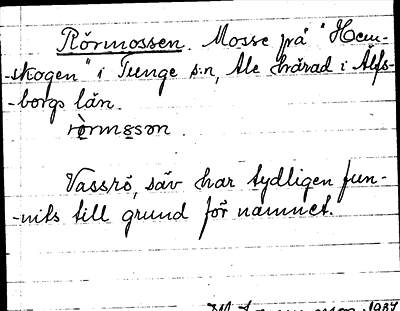 Rörmossen. Mosse på "Hem-
-skogen" i Tunge s:n, Ale härad i Älfs-
-borgs län.
ròrmɵsɵn.
Vassrö, säv har tydligen fun-
-nits till grund för namnet.
1937